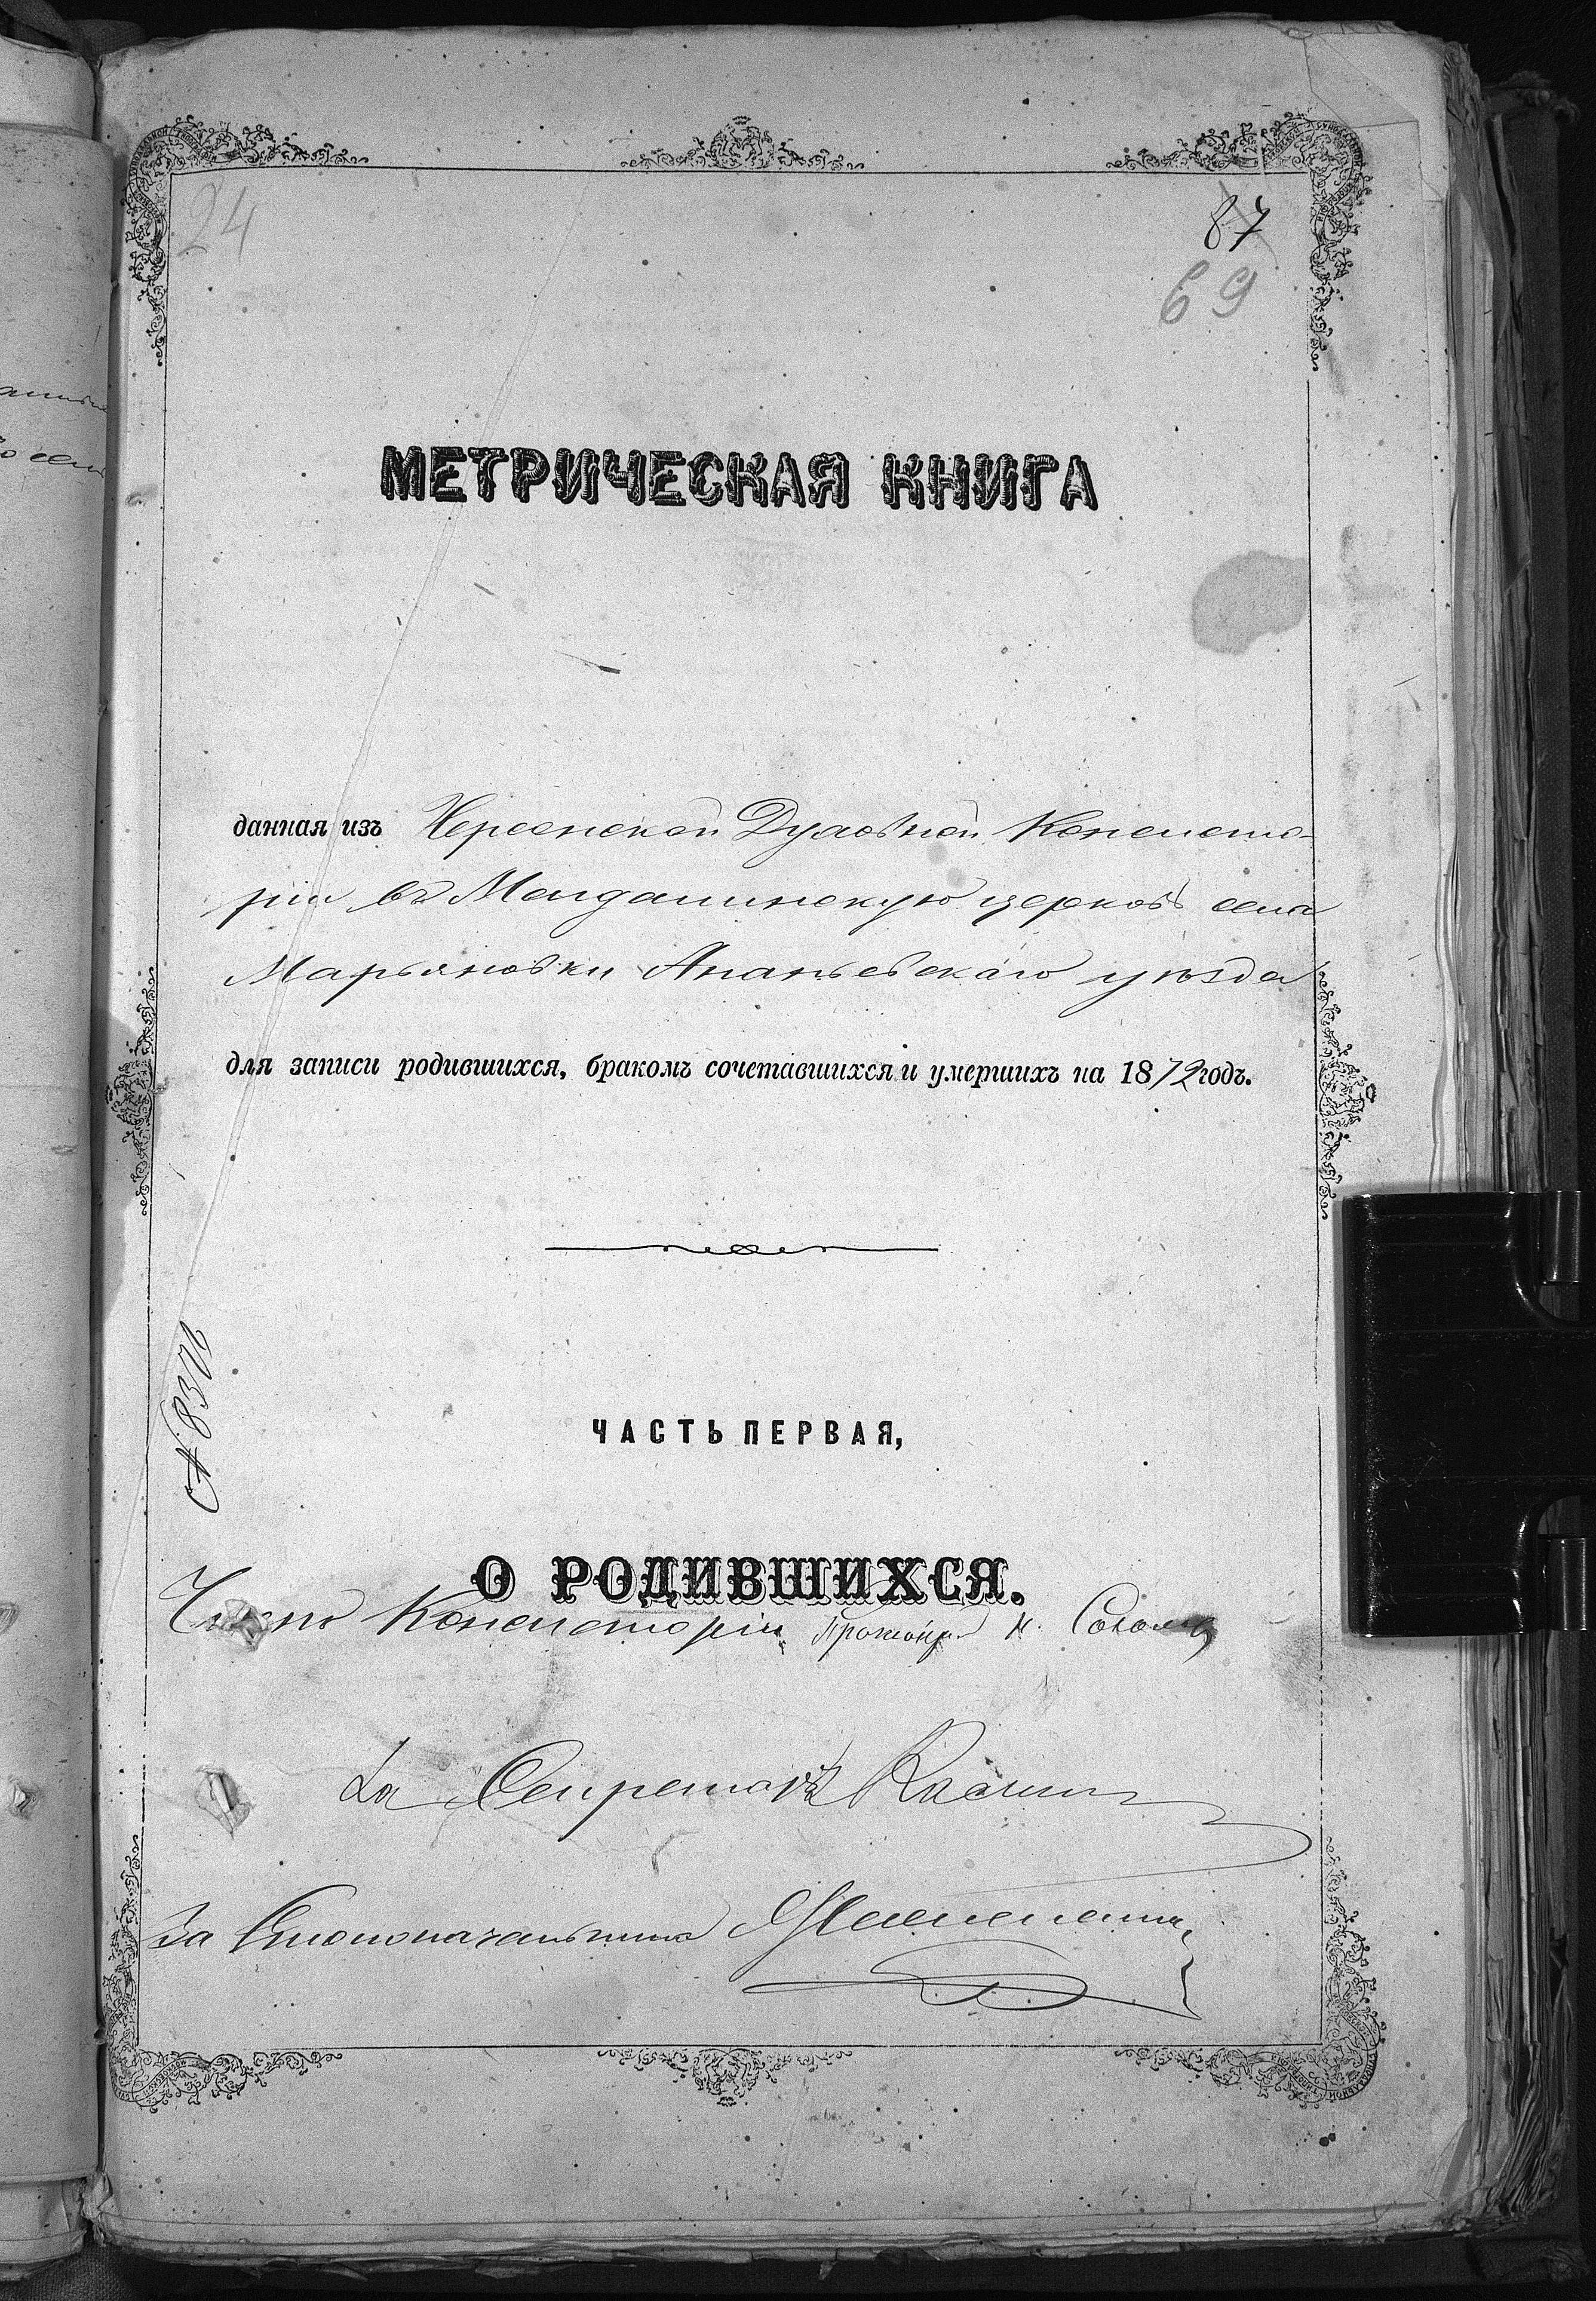 24
87
69
МЕТРИЧЕСКАЯ КНИГА
данная изъ Херсонской Духовной Консисто-
ріи въ Магдалинскую церковь села
Марьяновки Ананьевскаго уѣзда
для записи родившихся, бракомъ сочетавшихся и умершихъ на 1872 годъ.
ЧАСТЬ ПЕРВАЯ,
О РОДИВШИХСЯ.
Членъ Консисторіи Протоіерей
За Секретарь
За Столоначальника